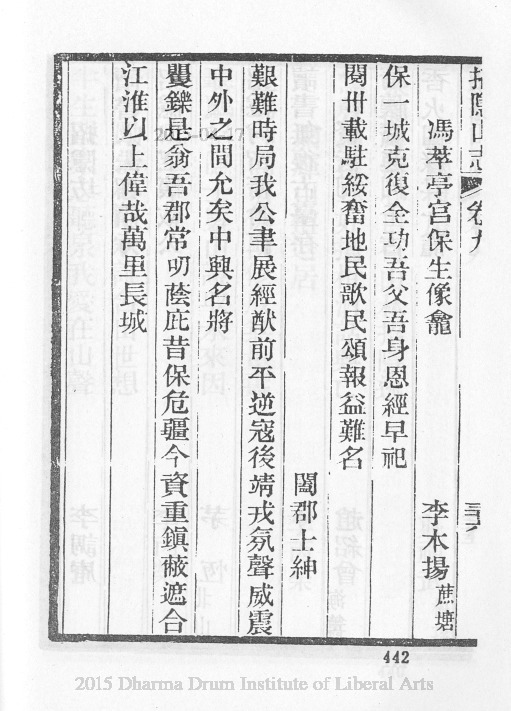 招隱山志 卷九 三六
馮萃亭宮保生像龕 李本揚 蔗塘
保一城克復全功吾父吾身恩經早祀
閱卅載駐綏舊地民歌民頌報益難名
闔郡士紳
艱難時局我公聿展經猷前平逆寇後靖戎氛聲威震
中外之間允矣中興名將
矍鑠是翁吾郡常叨蔭庇昔保危疆今資重鎮蔽遮合
江淮以上偉哉萬里長城
442
2015 Dharma Drum Institute of Liberal Arts